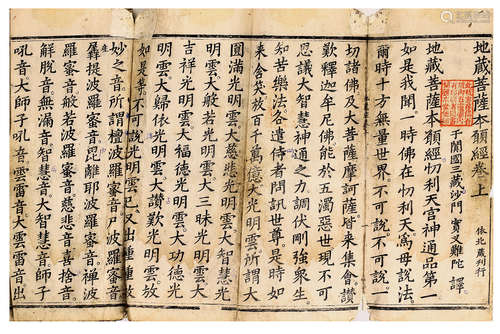 地藏菩薩本願經卷上
依北藏刊行
于闐國三藏沙門 實叉難陀 譯
地藏菩薩本願經忉利天宮神通品第一
如是我聞一時佛在忉利天爲母說法
爾時十方無量世界不可說不可說一
切諸佛及大菩薩摩訶薩皆來集會讚
歎釋迦牟尼佛能於五濁惡世現不可
思議大智慧神通之力調伏剛強衆生
知苦樂法各遣侍者問訊世尊是時如
來含笑放百千萬億大光明雲所謂大
圓滿光明雲大慈悲光明雲大智慧光
明雲大般若光明雲大三昧光明雲大
吉祥光明雲大福德光明雲大功德光
明雲大歸依光明雲大讚歎光明雲放
如是等不可說光明雲已又出種種微
妙之音所謂檀波羅蜜音尸波羅蜜音
羼提波羅蜜音毘離耶波羅蜜音禪波
羅蜜音般若波羅蜜音慈悲音喜捨音
解脫音無漏音智慧音大智慧音師子
吼音大師子吼音雲雷音大雲雷音出